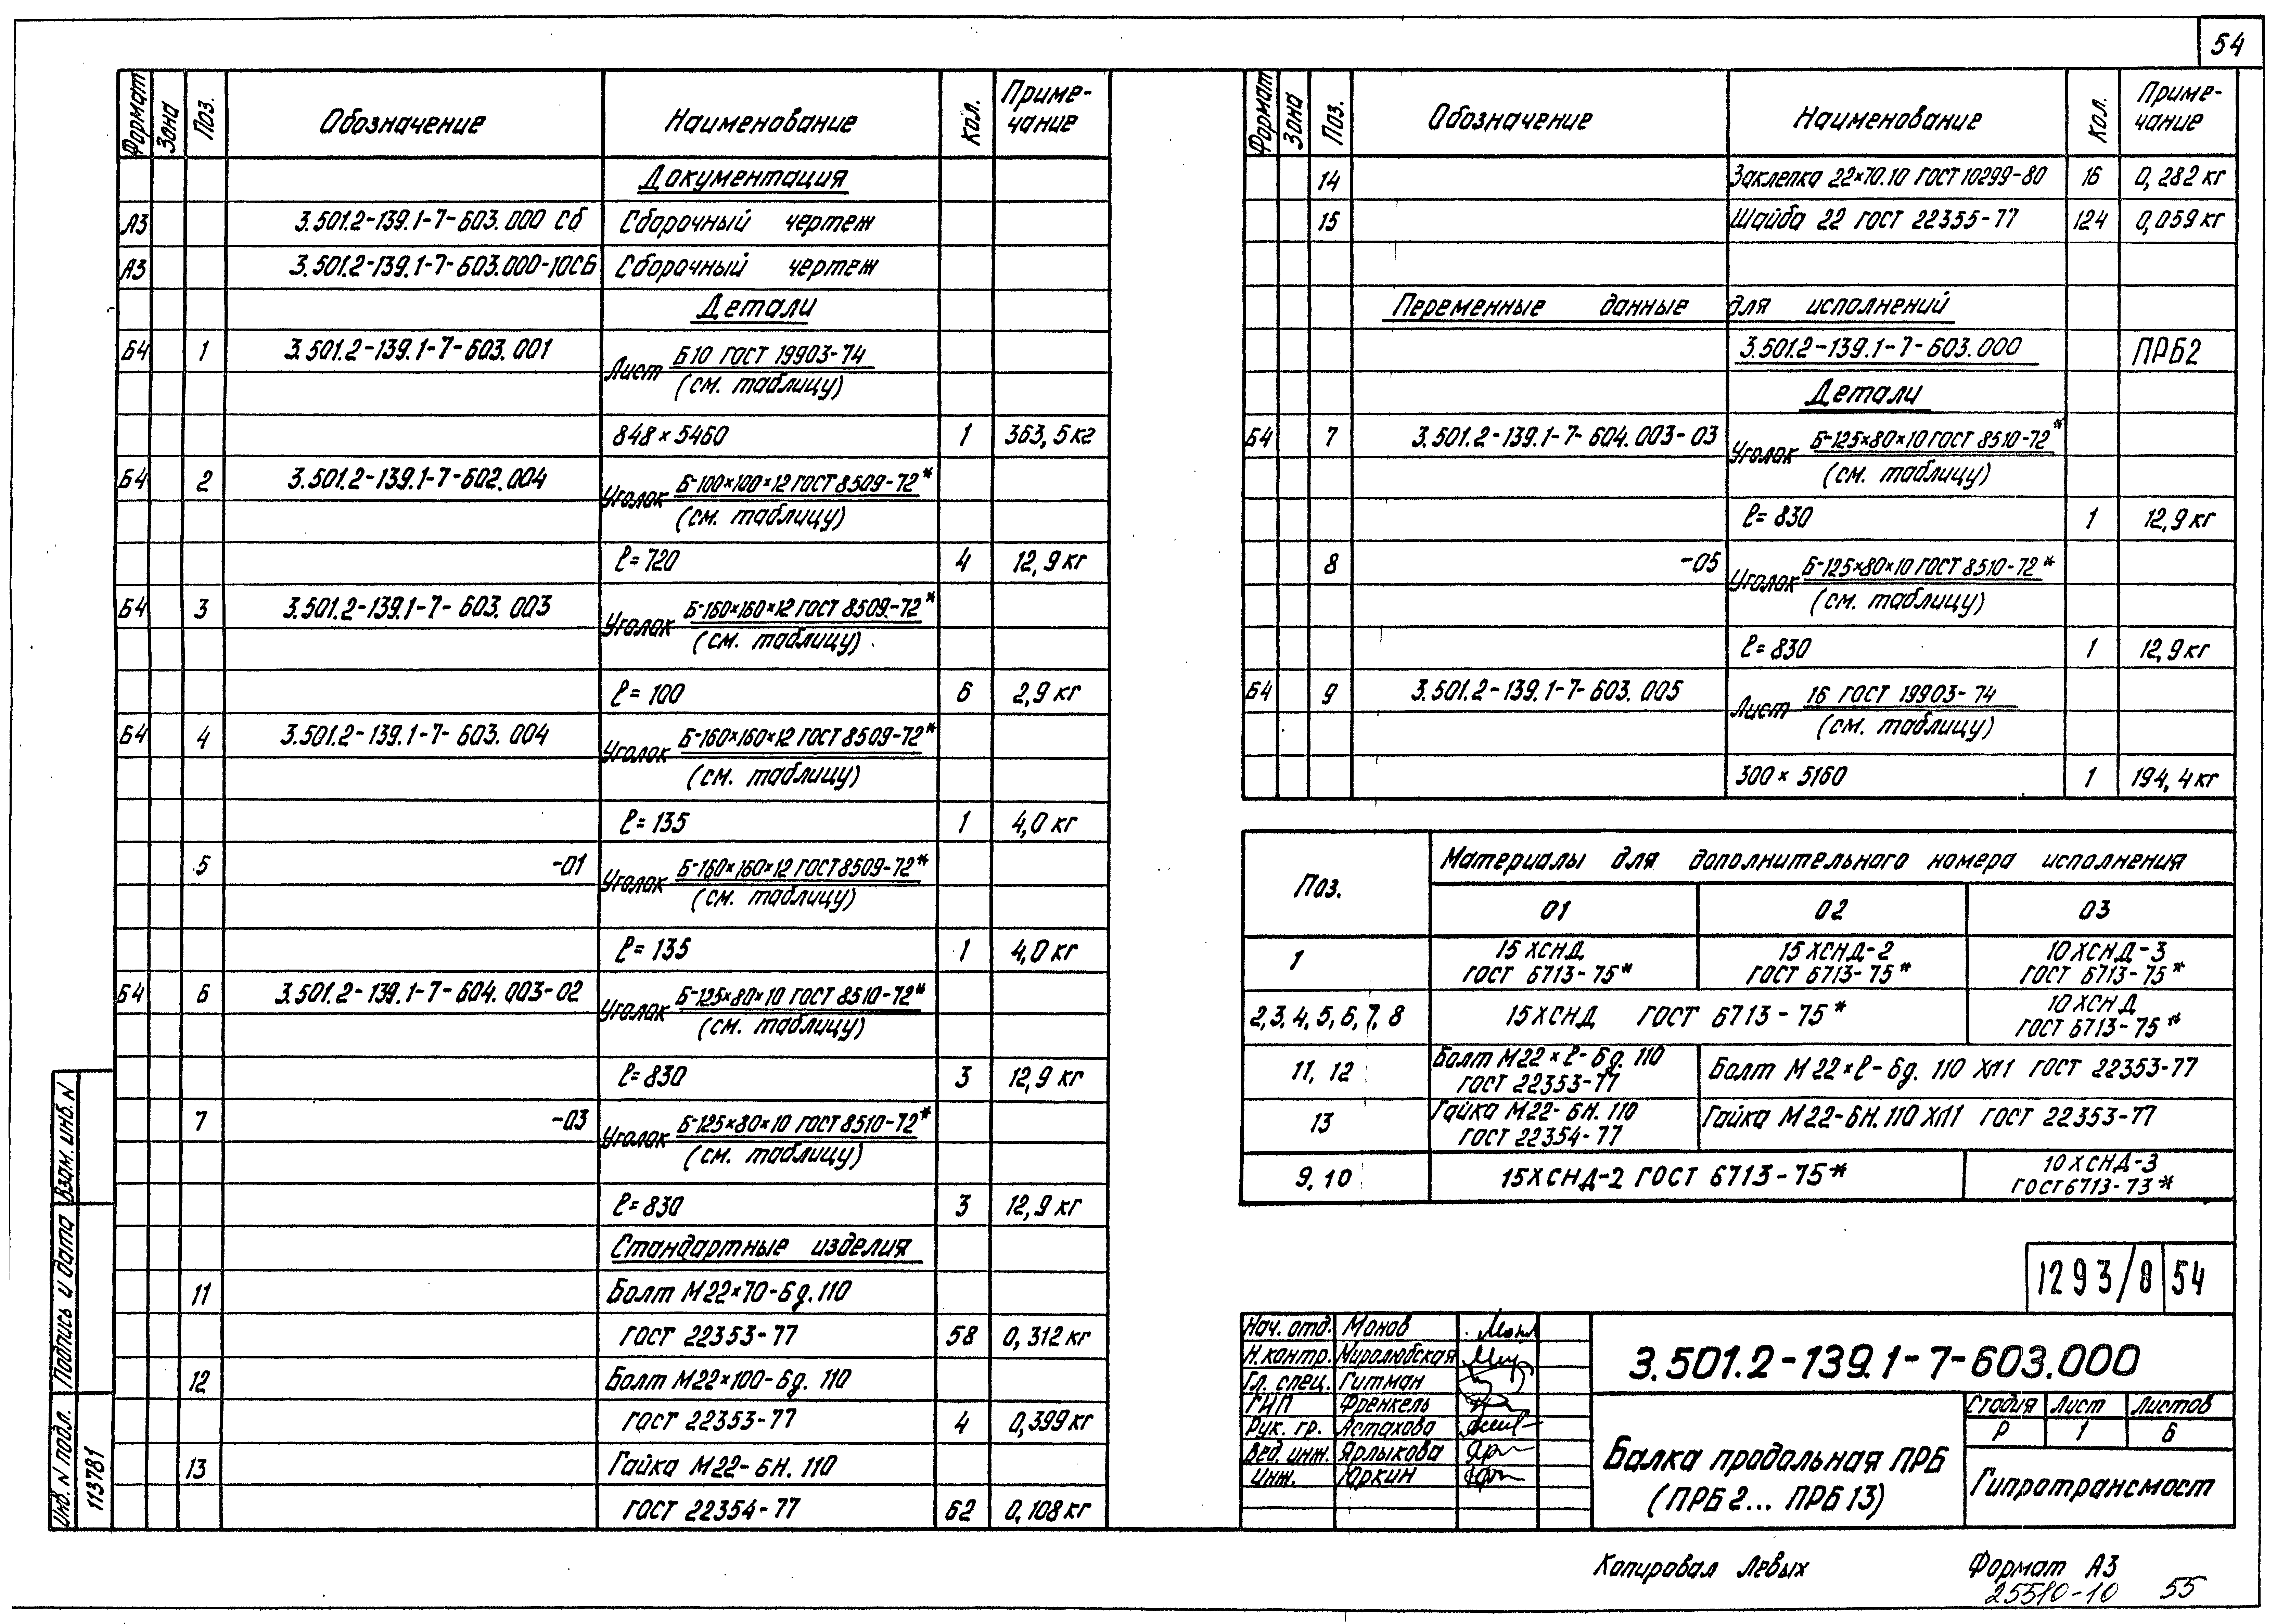 54
Формат Зона Поз. Обозначение Наименование Кол. Примечание
Документация
А3 3.501.2-139.1-7-603.000 Сб Сборочный чертеж
А3 3.501.2-139.1-7-603.000-10СБ Сборочный чертеж
Детали
Б4 1 3.501.2-139.1-7-603.001 Лист Б10 ГОСТ 19903-74
(см. таблицу)
848×5460 1 363,5кг
Б4 2 3.501.2-139.1-7-602.004 Уголок Б-100×100×12 ГОСТ 8509-72*
(см. таблицу)
ℓ=720 4 12,9кг
Б4 3 3.501.2-139.1-7-603.003 Уголок Б-160×160×12 ГОСТ 8509-72*
(см. таблицу)
ℓ=100 6 2,9кг
Б4 4 3.501.2-139.1-7-603.004 Уголок Б-160×160×12 ГОСТ 8509-72*
(см. таблицу)
ℓ=135 1 4,0кг
5 -01 Уголок Б-160×160×12 ГОСТ 8509-72*
(см. таблицу)
ℓ=135 1 4,0кг
Б4 6 3.501.2-139.1-7-604.003-02 Уголок Б-125×80×10 ГОСТ 8510-72*
(см. таблицу)
ℓ=830 3 12,9кг
7 -03 Уголок Б-125×80×10 ГОСТ 8510-72*
(см. таблицу)
ℓ=830 3 12,9кг
Стандартные изделия
11 Болт М22×70-6g.110
ГОСТ 22353-77 58 0,312кг
12 Болт М22×100-6g. 110
ГОСТ 22353-77 4 0,399кг
13 Гайка М22-6Н.110
ГОСТ 22354-77 62 0,108кг
Инв. N подл. Подпись и дата Взам. инв. N
113781
Формат Зона Поз. Обозначение Наименование Кол. Примечание
14 Заклепка 22×70.10 ГОСТ 10299-80 16 0,282кг
15 Шайба 22 ГОСТ 22355-77 124 0,059кг
Переменные данные для исполнений
3.501.2-139.1-7-603.000 ПРБ2
Детали
Б4 7 3.501.2-139.1-7-604.003-03 Уголок Б-125×80×10 ГОСТ 8510-72*
(см. таблицу)
ℓ=830 1 12,9кг
8 -05 Уголок Б-125×80×10 ГОСТ 8510-72*
(см. таблицу)
ℓ=830 1 12,9кг
Б4 9 3.501.2-139.1-7-603.005 Лист 16 ГОСТ 19903-74
(см. таблицу)
300×5160 1 194,4кг
Поз. Материалы для дополнительного номера исполнения
01 02 03
1 15ХСНД ГОСТ 6713-75* 15ХСНД-2 ГОСТ 6713-75* 10ХСНД-3 ГОСТ 6713-75*
2,3,4,5,6,7,8 15ХСНД ГОСТ 6713-75* 10ХСНД ГОСТ 6713-75*
11, 12 Болт М22×ℓ-6g.110 ГОСТ 22353-77 Болт М22×ℓ-6g. 110 ХЛ1 ГОСТ 22353-77
13 Гайка М22-6Н.110 ГОСТ 22354-77 Гайка М22-6Н.110 ХЛ1 ГОСТ 22353-77
9,10 15ХСНД-2 ГОСТ 6713-75* 10ХСНД-3 ГОСТ 6713-73*
1293/8 54
Нач. отд. Монов
Н.контр. Миролюбская
Гл. спец. Гитман
ГИП Френкель
Рук. гр. Астахова
Вед. инж. Ярлыкова
Инж. Юркин
3.501.2-139.1-7-603.000
Балка продольная ПРБ
(ПРБ 2... ПРБ 13)
Стадия Лист Листов
Р 1 6
Гипротрансмост
Копировал Левых Формат А3
25510-10 55